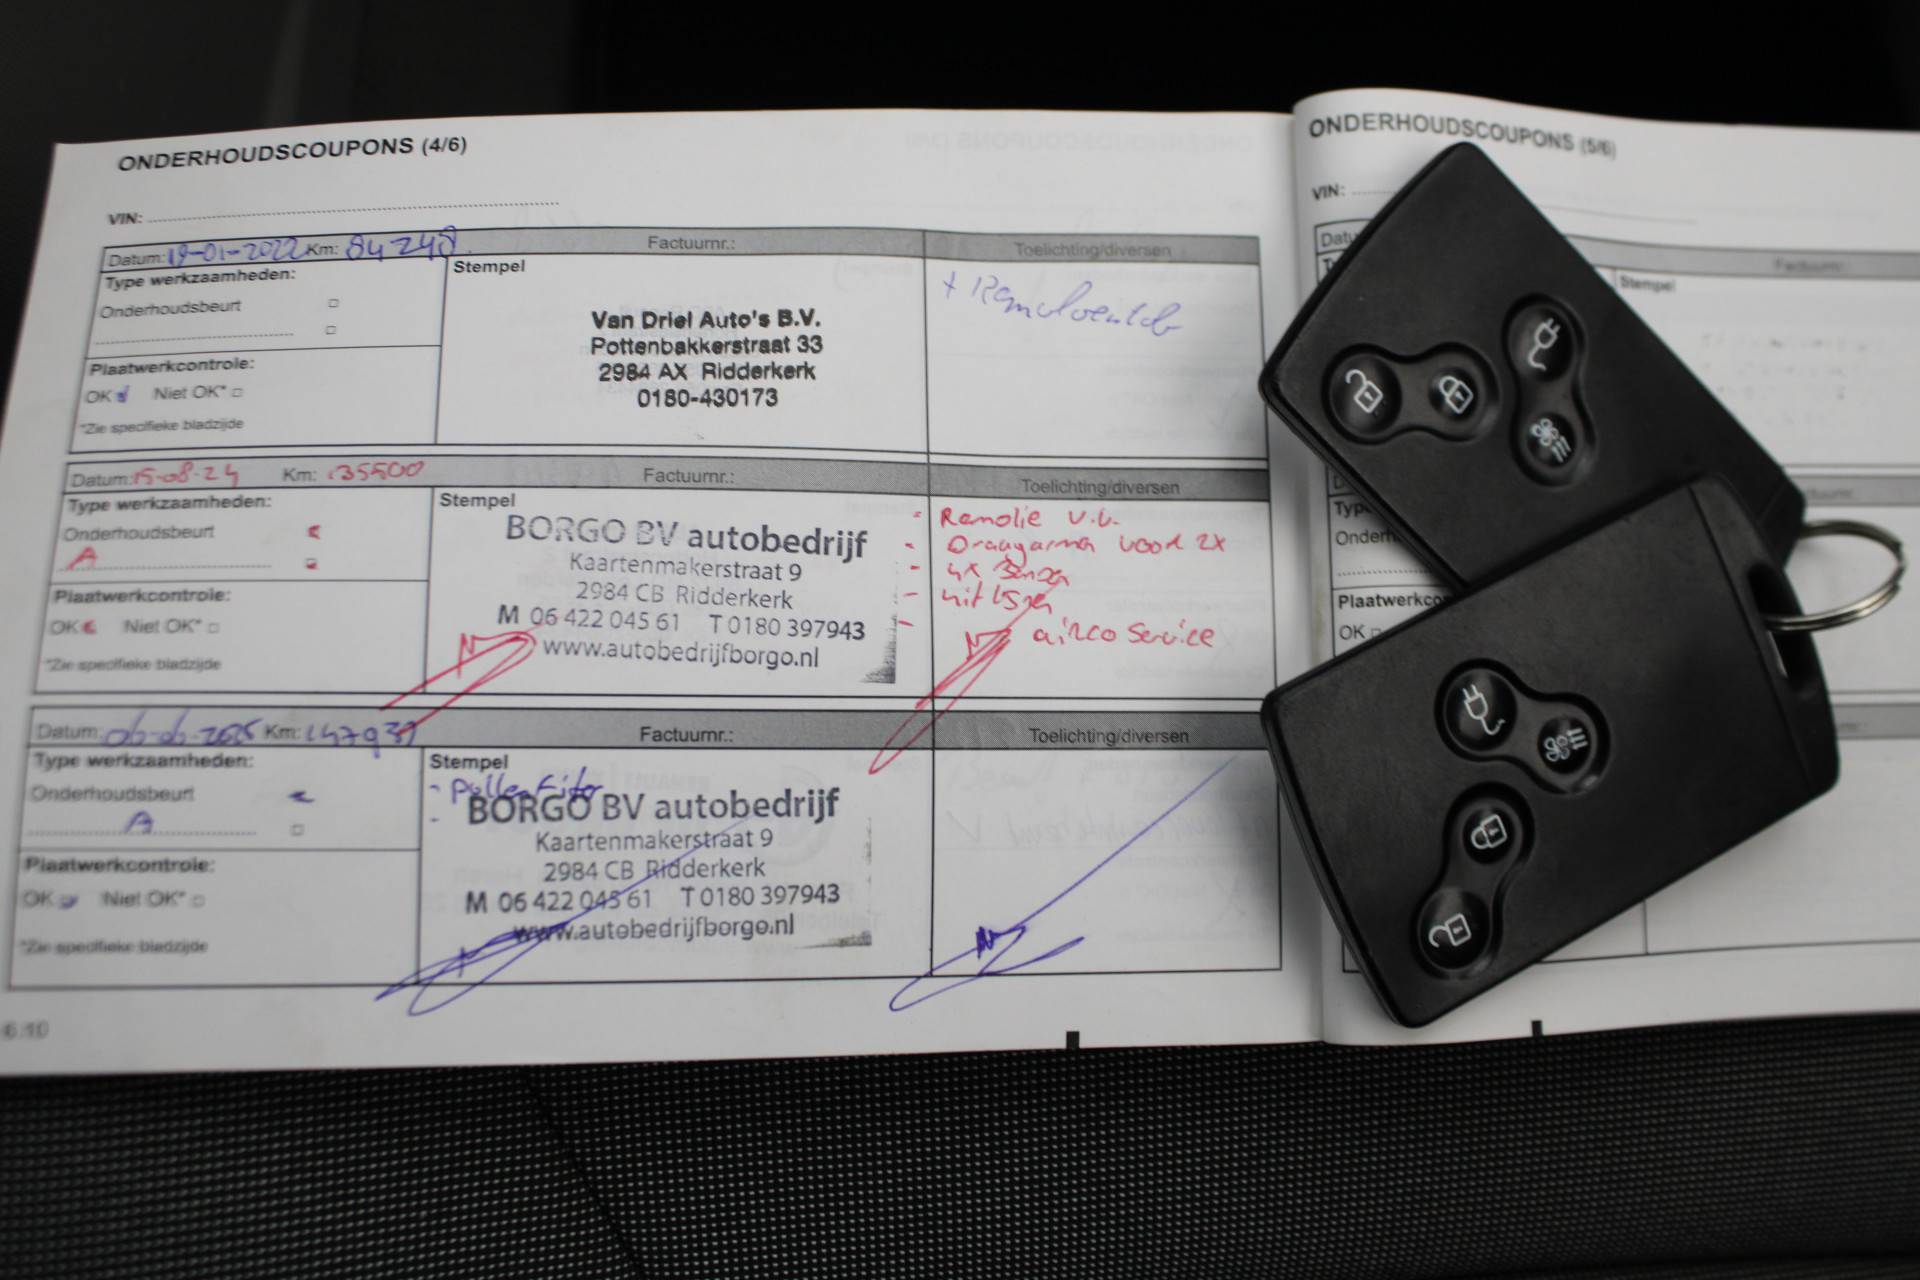 ONDERHOUDSCOUPONS (4/6)
VIN:
Datum: 19-01-2022 Km: 84248 Factuurnr.: Toelichting/diversen
Type werkzaamheden:
Onderhoudsbeurt
Plaatwerkcontrole:
OK Niet OK*
*Zie specifieke bladzijde
Stempel
Van Driel Auto's B.V.
Pottenbakkerstraat 33
2984 AX Ridderkerk
0180-430173
Datum: 15-08-24 Km: 135500 Factuurnr.: Toelichting/diversen
Type werkzaamheden:
Onderhoudsbeurt
A
Plaatwerkcontrole:
OK Niet OK*
*Zie specifieke bladzijde
Stempel
BORGO BV autobedrijf
Kaartenmakerstraat 9
2984 CB Ridderkerk
M 06 422 045 61 T 0180 397943
www.autobedrijfborgo.nl
- Remolie v.v.
- Draagarmen voor 2x
- 4x
- uitlijnen
- airco service
Datum: 06-06-2025 Km: 147931 Factuurnr.: Toelichting/diversen
Type werkzaamheden:
Onderhoudsbeurt
A
Plaatwerkcontrole:
OK Niet OK*
*Zie specifieke bladzijde
Stempel
- Pollenfilter
-
BORGO BV autobedrijf
Kaartenmakerstraat 9
2984 CB Ridderkerk
M 06 422 045 61 T 0180 397943
www.autobedrijfborgo.nl
6.10
ONDERHOUDSCOUPONS (5/6)
VIN:
Stempel
Factuurnr.:
Plaatwerkco
OK